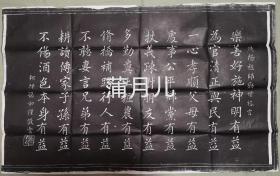 樂善好施神明有益
為官清正與民有益
一心孝順父母有益
處事公平鄉黨有益
扶危濟朋友有益
多勤農有益
修橋補路行人有益
不聽妻言兄弟有益
耕讀傳家子孫有益
不傷酒色本身有益
蒲月儿